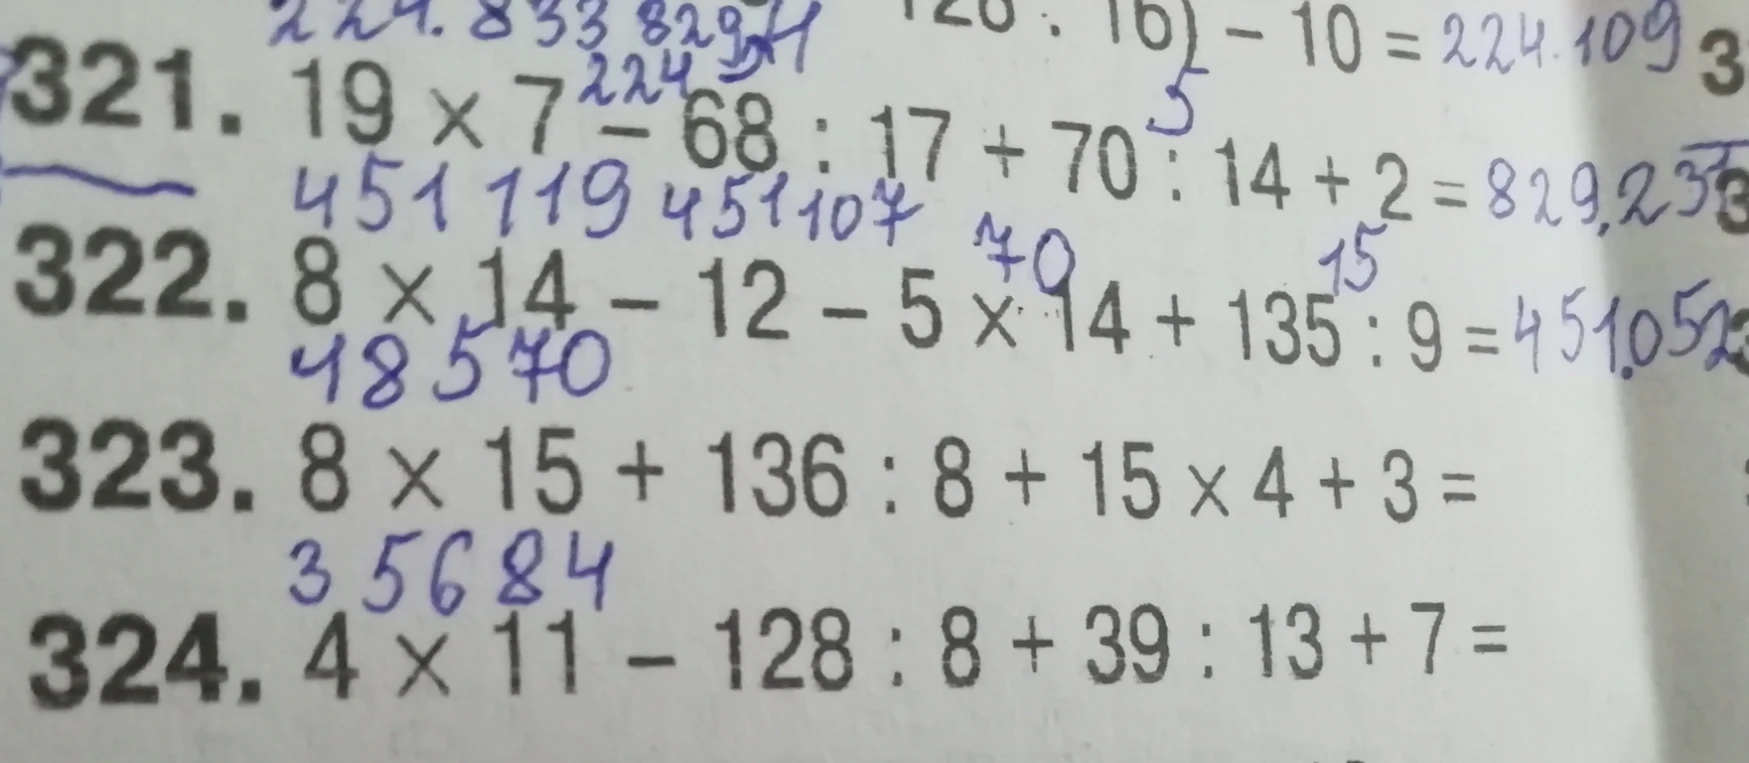 224.833 829
: 16) − 10 = 224.109
224 5
321. 19 × 7 − 68 : 17 + 70 : 14 + 2 = 829,23
451 119 451107 70 15
322. 8 × 14 − 12 − 5 × 14 + 135 : 9 = 451.052
48570
323. 8 × 15 + 136 : 8 + 15 × 4 + 3 =
35684
324. 4 × 11 − 128 : 8 + 39 : 13 + 7 =